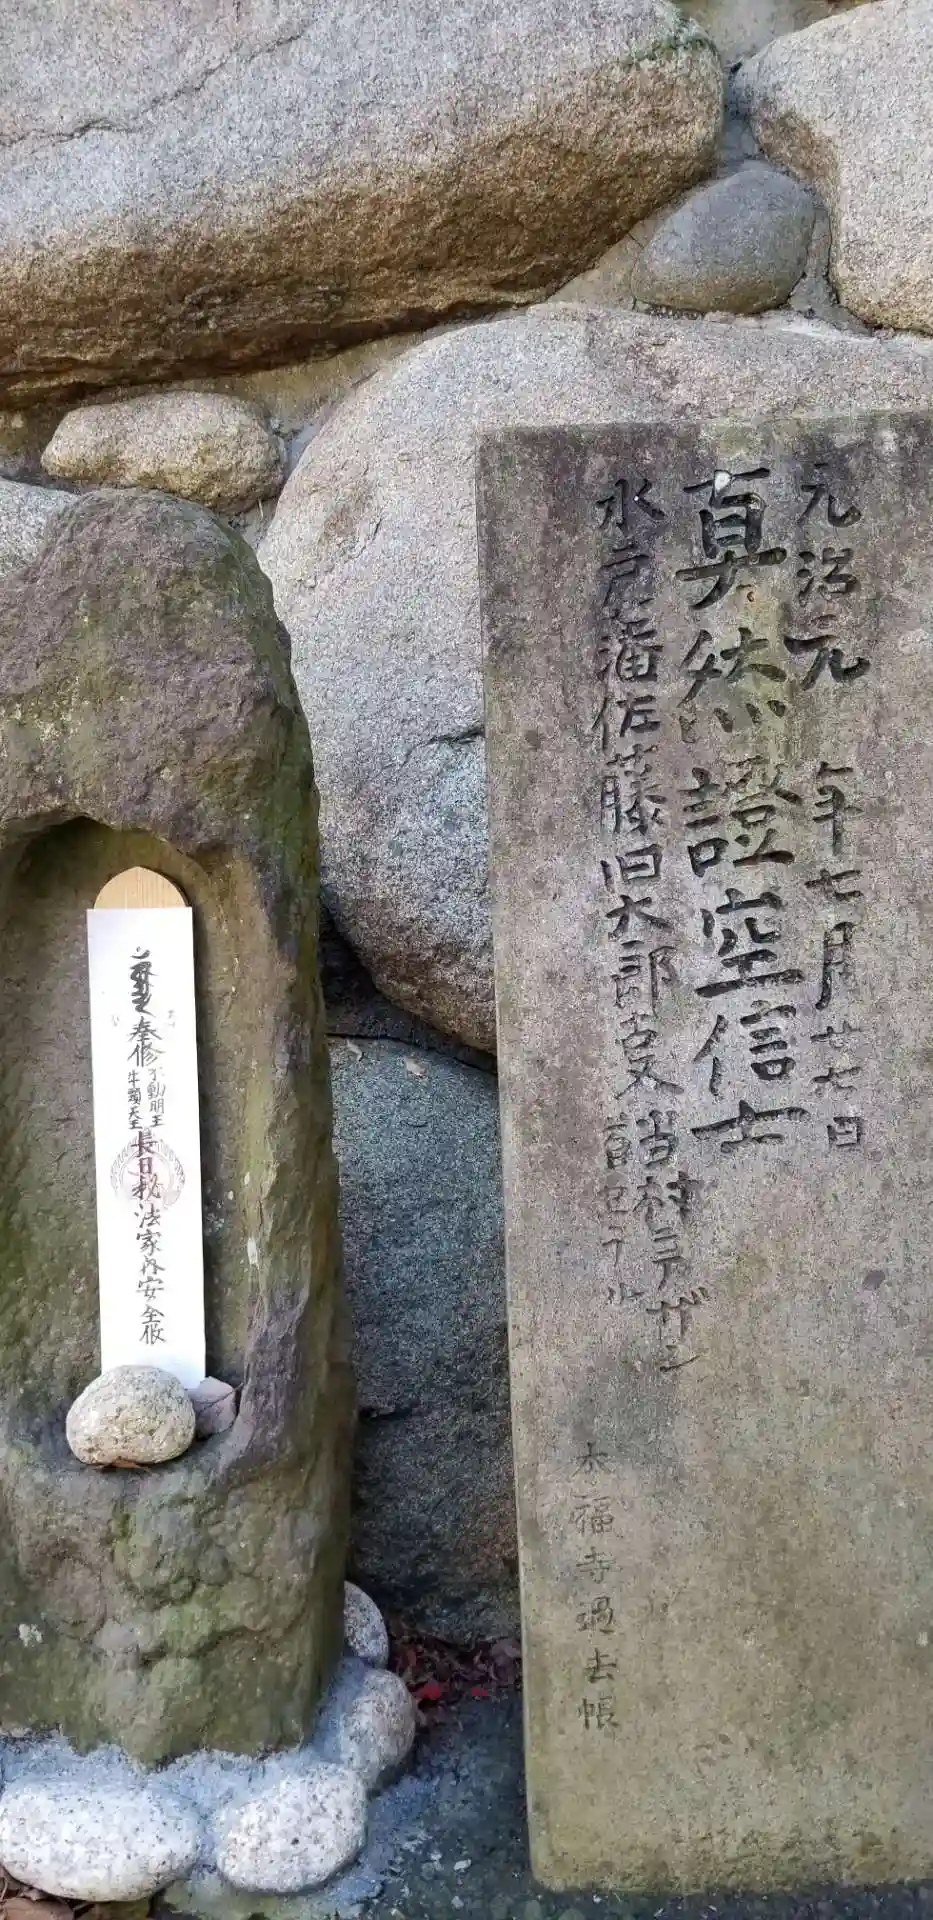 元治元年七月廿七日
真然證空信士
水戸藩佐藤旧大郎
当村ニテザン
首セラル
本福寺過去帳
奉修
不動明王
牛頭天王
長日秘法家内安全攸